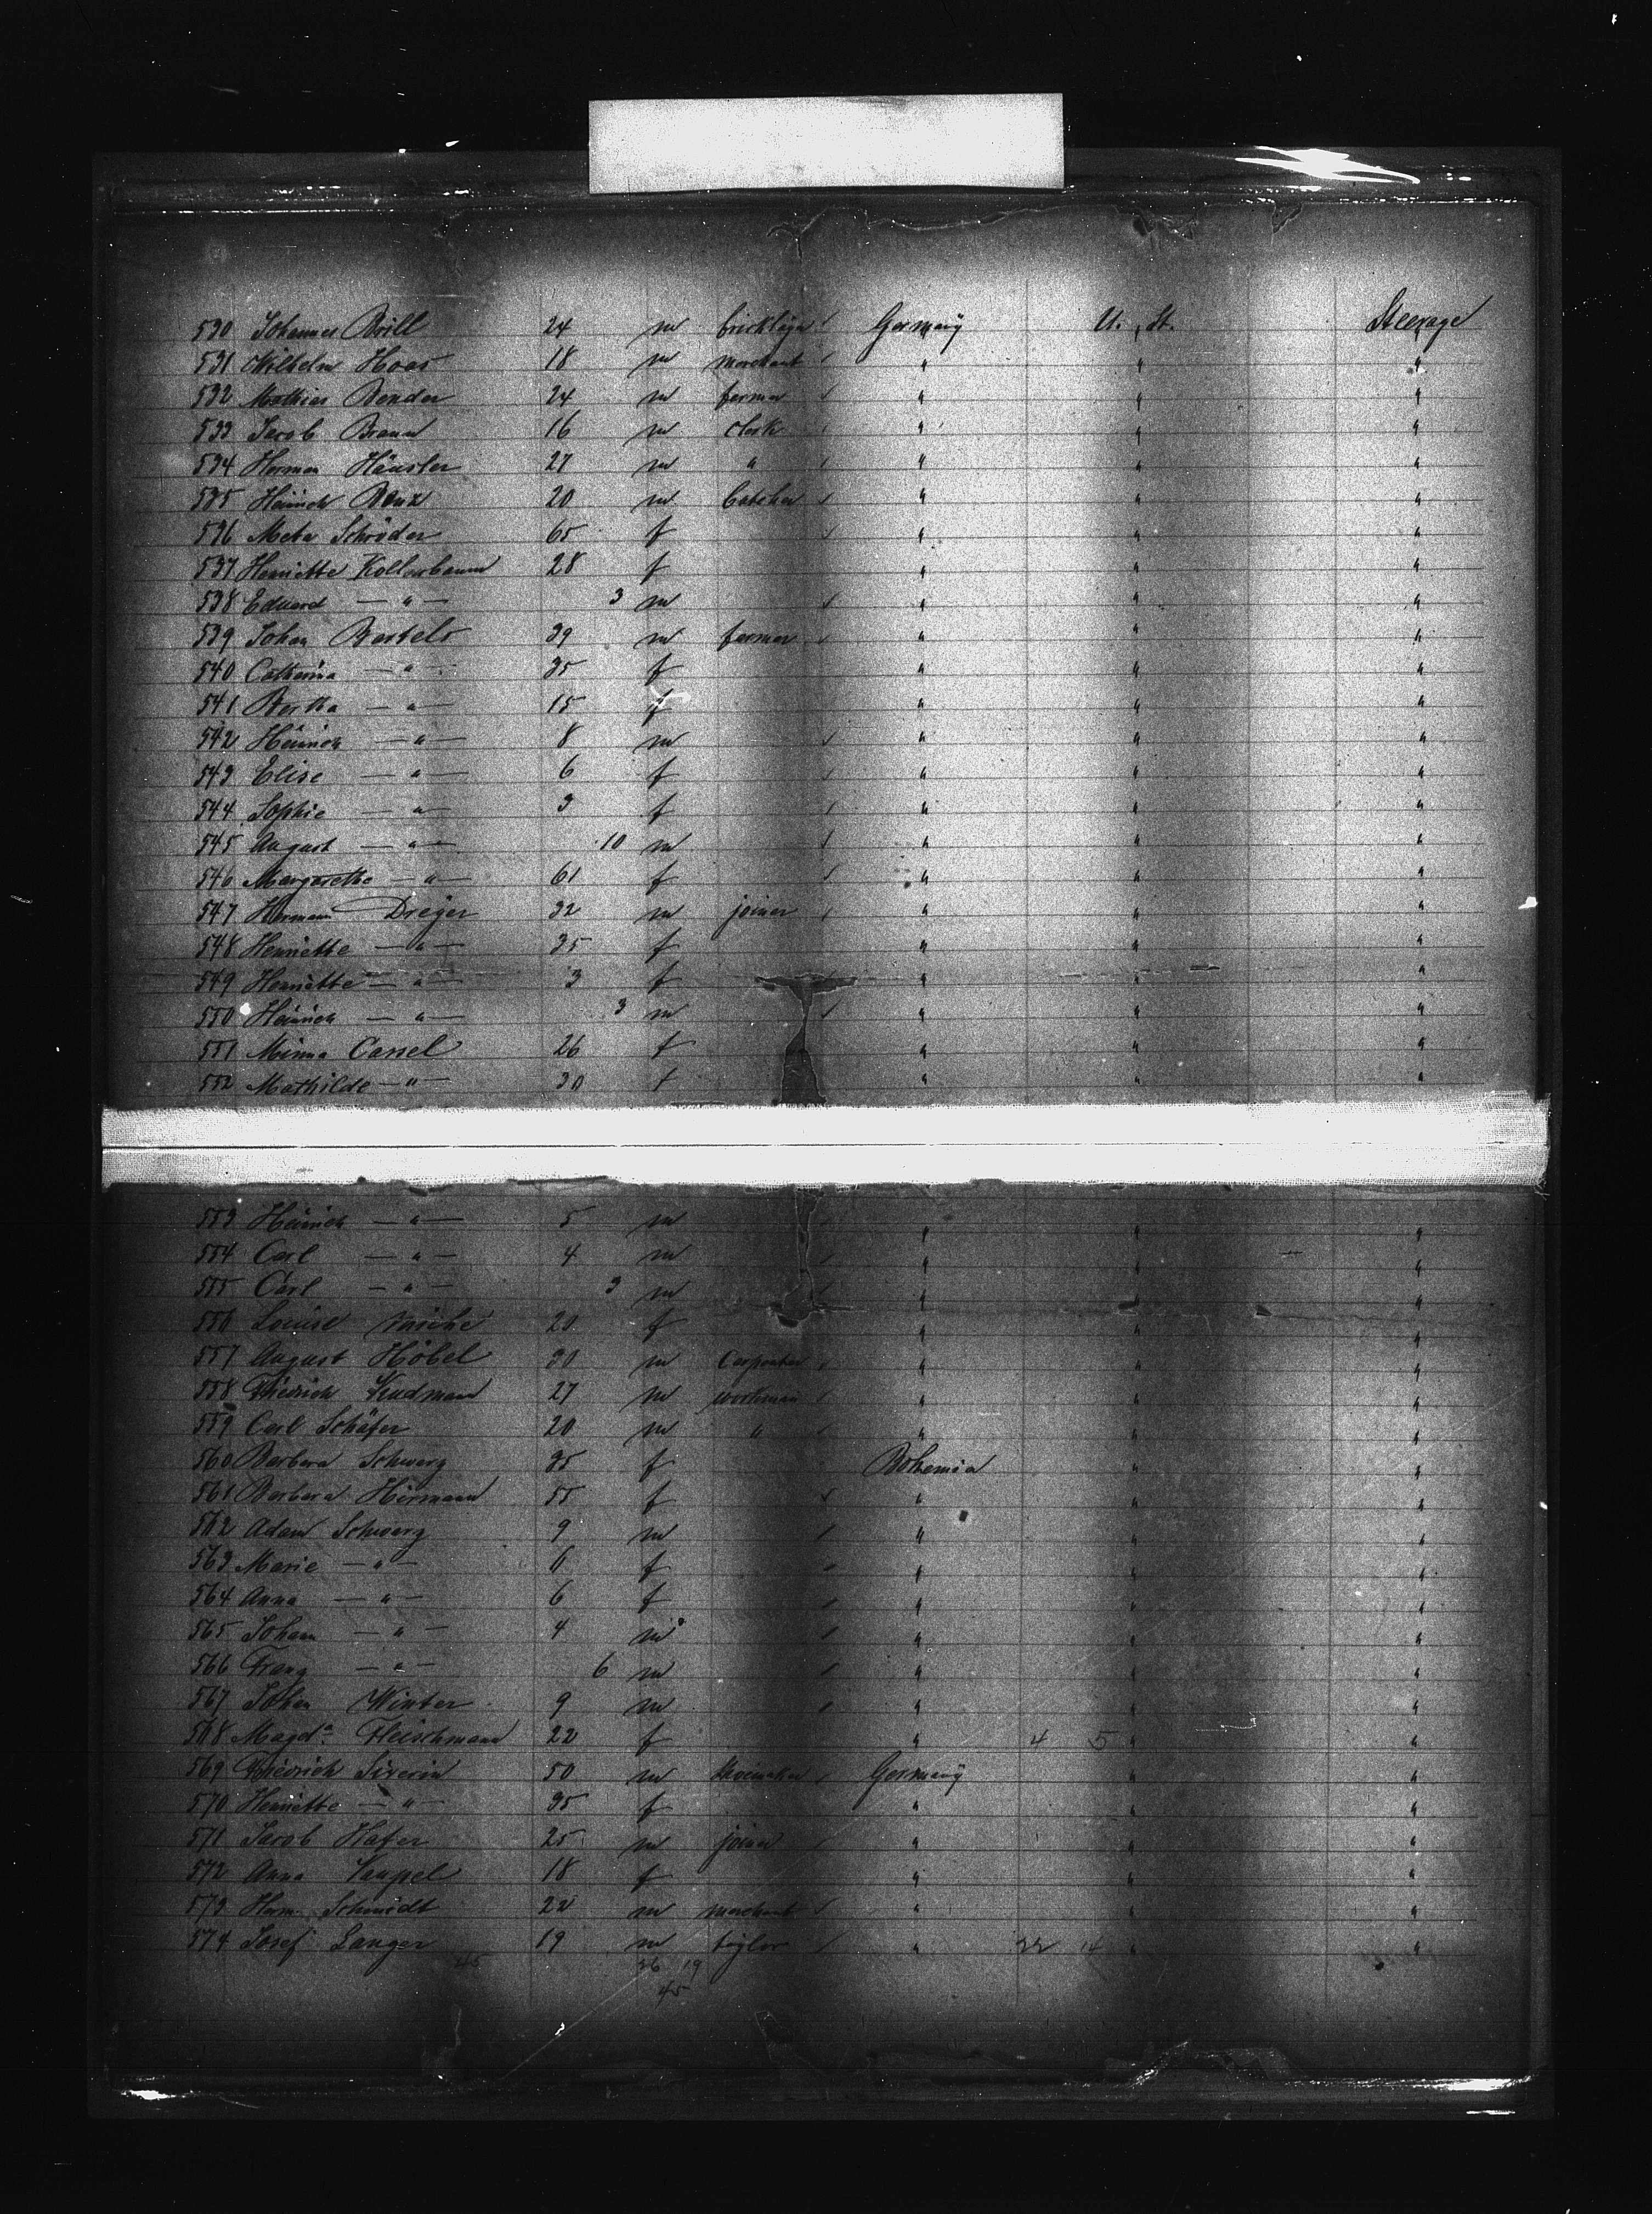 530 Johannes Brill 24 m bricklayer Germany U. St. Steerage
531 Wilhelm Haas 18 m merchant " " "
532 Mathias Bender 24 m farmer " " "
533 Jacob Braun 16 m clerk " " "
534 Herman Häusler 27 m " " " "
535 Heinrich Benz 20 m butcher " " "
536 Meta Schröder 65 f " " "
537 Henriette Kollerbaum 28 f " " "
538 Eduard — " — 3 m " " "
539 Johan Bartels 39 m farmer " " "
540 Catharina — " — 35 f " " "
541 Bertha — " — 15 f " " "
542 Heinrich — " — 8 m " " "
543 Elise — " — 6 f " " "
544 Sophie — " — 3 f " " "
545 August — " — 10 m " " "
546 Margarethe — " — 61 f " " "
547 Hermann Dreÿer 32 m joiner " " "
548 Henriette — " — 35 f " " "
549 Henriette — " — 3 f " " "
550 Heinrich — " — 3 m " " "
551 Minna Cassel 26 f " " "
552 Mathilde — " — 30 f " " "
553 Heinrich — " — 5 m " " "
554 Carl — " — 4 m " " "
555 Carl — " — 3 m " " "
556 Louise 20 f " " "
557 August Höbel 30 m Carpenter " " "
558 Friedrich 27 m workman " " "
559 Carl Schäfer 20 m " " " "
560 Barbara Schwarz 35 f Bohemia " "
561 Barbara Hermann 55 f " " "
562 Adam Schwarz 9 m " " "
563 Marie — " — f " " "
564 Anna — " — 6 f " " "
565 Johann — " — 4 m " " "
566 Franz — " — 6 m " " "
567 Johan Winter 9 m " " "
568 Magda Fleischmann 22 f " 4 5 " "
569 Friedrich Siverin 50 m shoemaker Germany " "
570 Henriette — " — 35 f " " "
571 Jacob Hafer 25 m joiner " " "
572 Anna 18 f " " "
573 Herm. Schmidt 22 m merchant " " "
574 Josef Langer 19 m taylor " " "
45 26 19
45